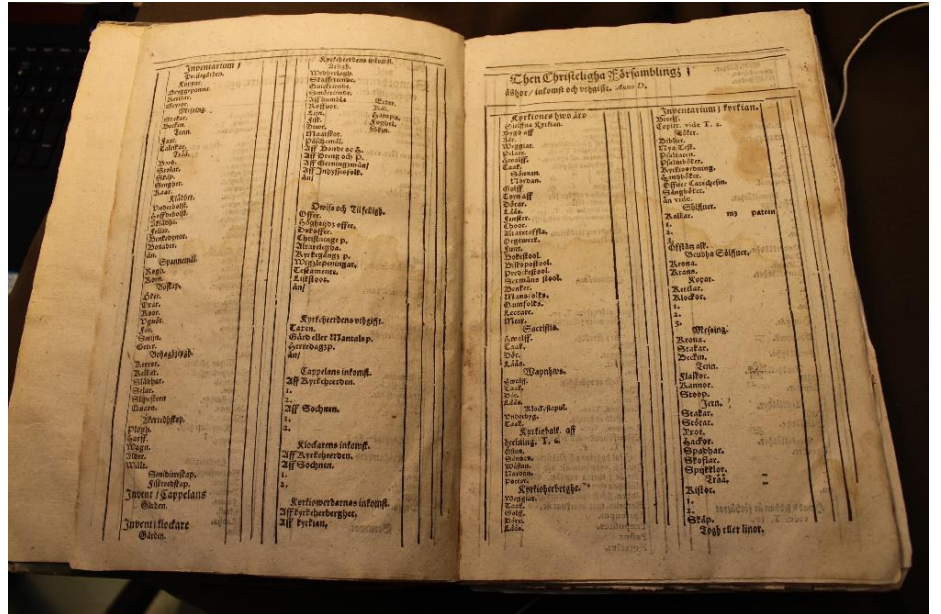 Inventarium j
Prestegården.
Koppar.
Bryggepanne.
Kettlar.
Messing.
Stakar.
Becken.
Tenn.
Faat.
Talrikar.
Trää.
Bord.
Stolar.
Skåp.
Sengher.
Karar.
Klädher.
Bonader.
än.
Spannemål.
Rogh.
Korn.
Boskap.
Oxar.
Koor.
Ungnöt.
Fåår.
Swijn.
Geter.
Bohagztygh.
Kerror.
Kelkar.
Slädhar.
Selar.
Slipesteen
Quarn.
Plogh.
Harff.
Wagn.
Smidireskap.
Fiskreedskap.
Invent i Cappelans
Gården.
Invent i klockare
Gården.
Kyrkeheerdens inkomst.
Kål.
Hampa.
Foghel.
Lijn.
Fisk.
Huur.
Maatskot.
Påschamål.
Aff Bonde oc h.
Aff Dreng och p.
Aff Gerningzmän/
Aff Inhyssisfolk.
än/
Owiss och Tilfelligh.
Offer.
Höghtijdz offer.
Dyk offer.
Christninge p.
Altarelegha.
Kyrkegångz p.
Wigzlepenningar.
Testamente.
Lijkstool.
än/
Kyrkeheerdens vthgifft.
Taxen.
Gärd eller Mantals p.
Herredagzp.
än/
Cappelans inkomst.
Aff Kyrkeheerden.
1.
2.
Aff Sochnen.
1.
2.
Klockarens inkomst.
Aff Kyrkeheerden.
Aff Sochnen.
1.
2.
Kyrkiowerdarnas inkomst.
Aff kyrkeherbergher.
Aff kyrkian.
Then Christeligha Församblingz j
äghor/ inkomst och vthgifft. Anno D.
Kyrkiones hws äro
Sielffua Kyrkian.
Bygd aff
Åår.
Weggiar.
Pelare.
Hwalff.
Taak.
Sunnan.
Nordan.
Golff
Torn aff
Dörar.
Låås.
Fenster.
Choor.
Altaretaffla.
Orgewerk.
Funt.
Bokestool.
Biskopsstool.
Predikestool.
Bencker.
Mansfolks.
Qwinfolks.
Lectare.
Meer.
Sacristia.
Hwalff.
Taak.
Dör.
Låås.
Wapnhws.
Hwalff.
Taak.
Dör.
Låås.
Klockestapul.
Vnderbyg.
Taak.
Kyrkiebalk. aff
deelning. T. 6.
Östan.
Sunnan.
Wästan.
Nordan.
Portar.
Kyrkioherberghe.
Weggiar.
Taak.
Golff.
Dörar.
Låås.
Inventarium j kyrkian.
Copier. vide T. 2.
Böker.
Biblier.
Nya Test.
Psaltaren.
Psalmböker.
Kyrkioordning.
Handböker.
Öffuer Catechesin.
Sångböker.
än vide.
Sölffuer.
Kalkar. mz paten
1.
2.
3.
Brudha Sölffuer.
Krona.
Krans.
Kopar.
Kettlar.
Klockor.
1.
2.
3.
Messing.
Krona.
Stakar.
Becken.
Tenn.
Flaskor.
Kannor.
Stoop.
Jern.
Stakar.
Stötar.
Hackor.
Spadhar.
Skoflar.
Spijkklor.
Trää.
Kistor.
1.
2.
Skåp.
Togh eller linor.